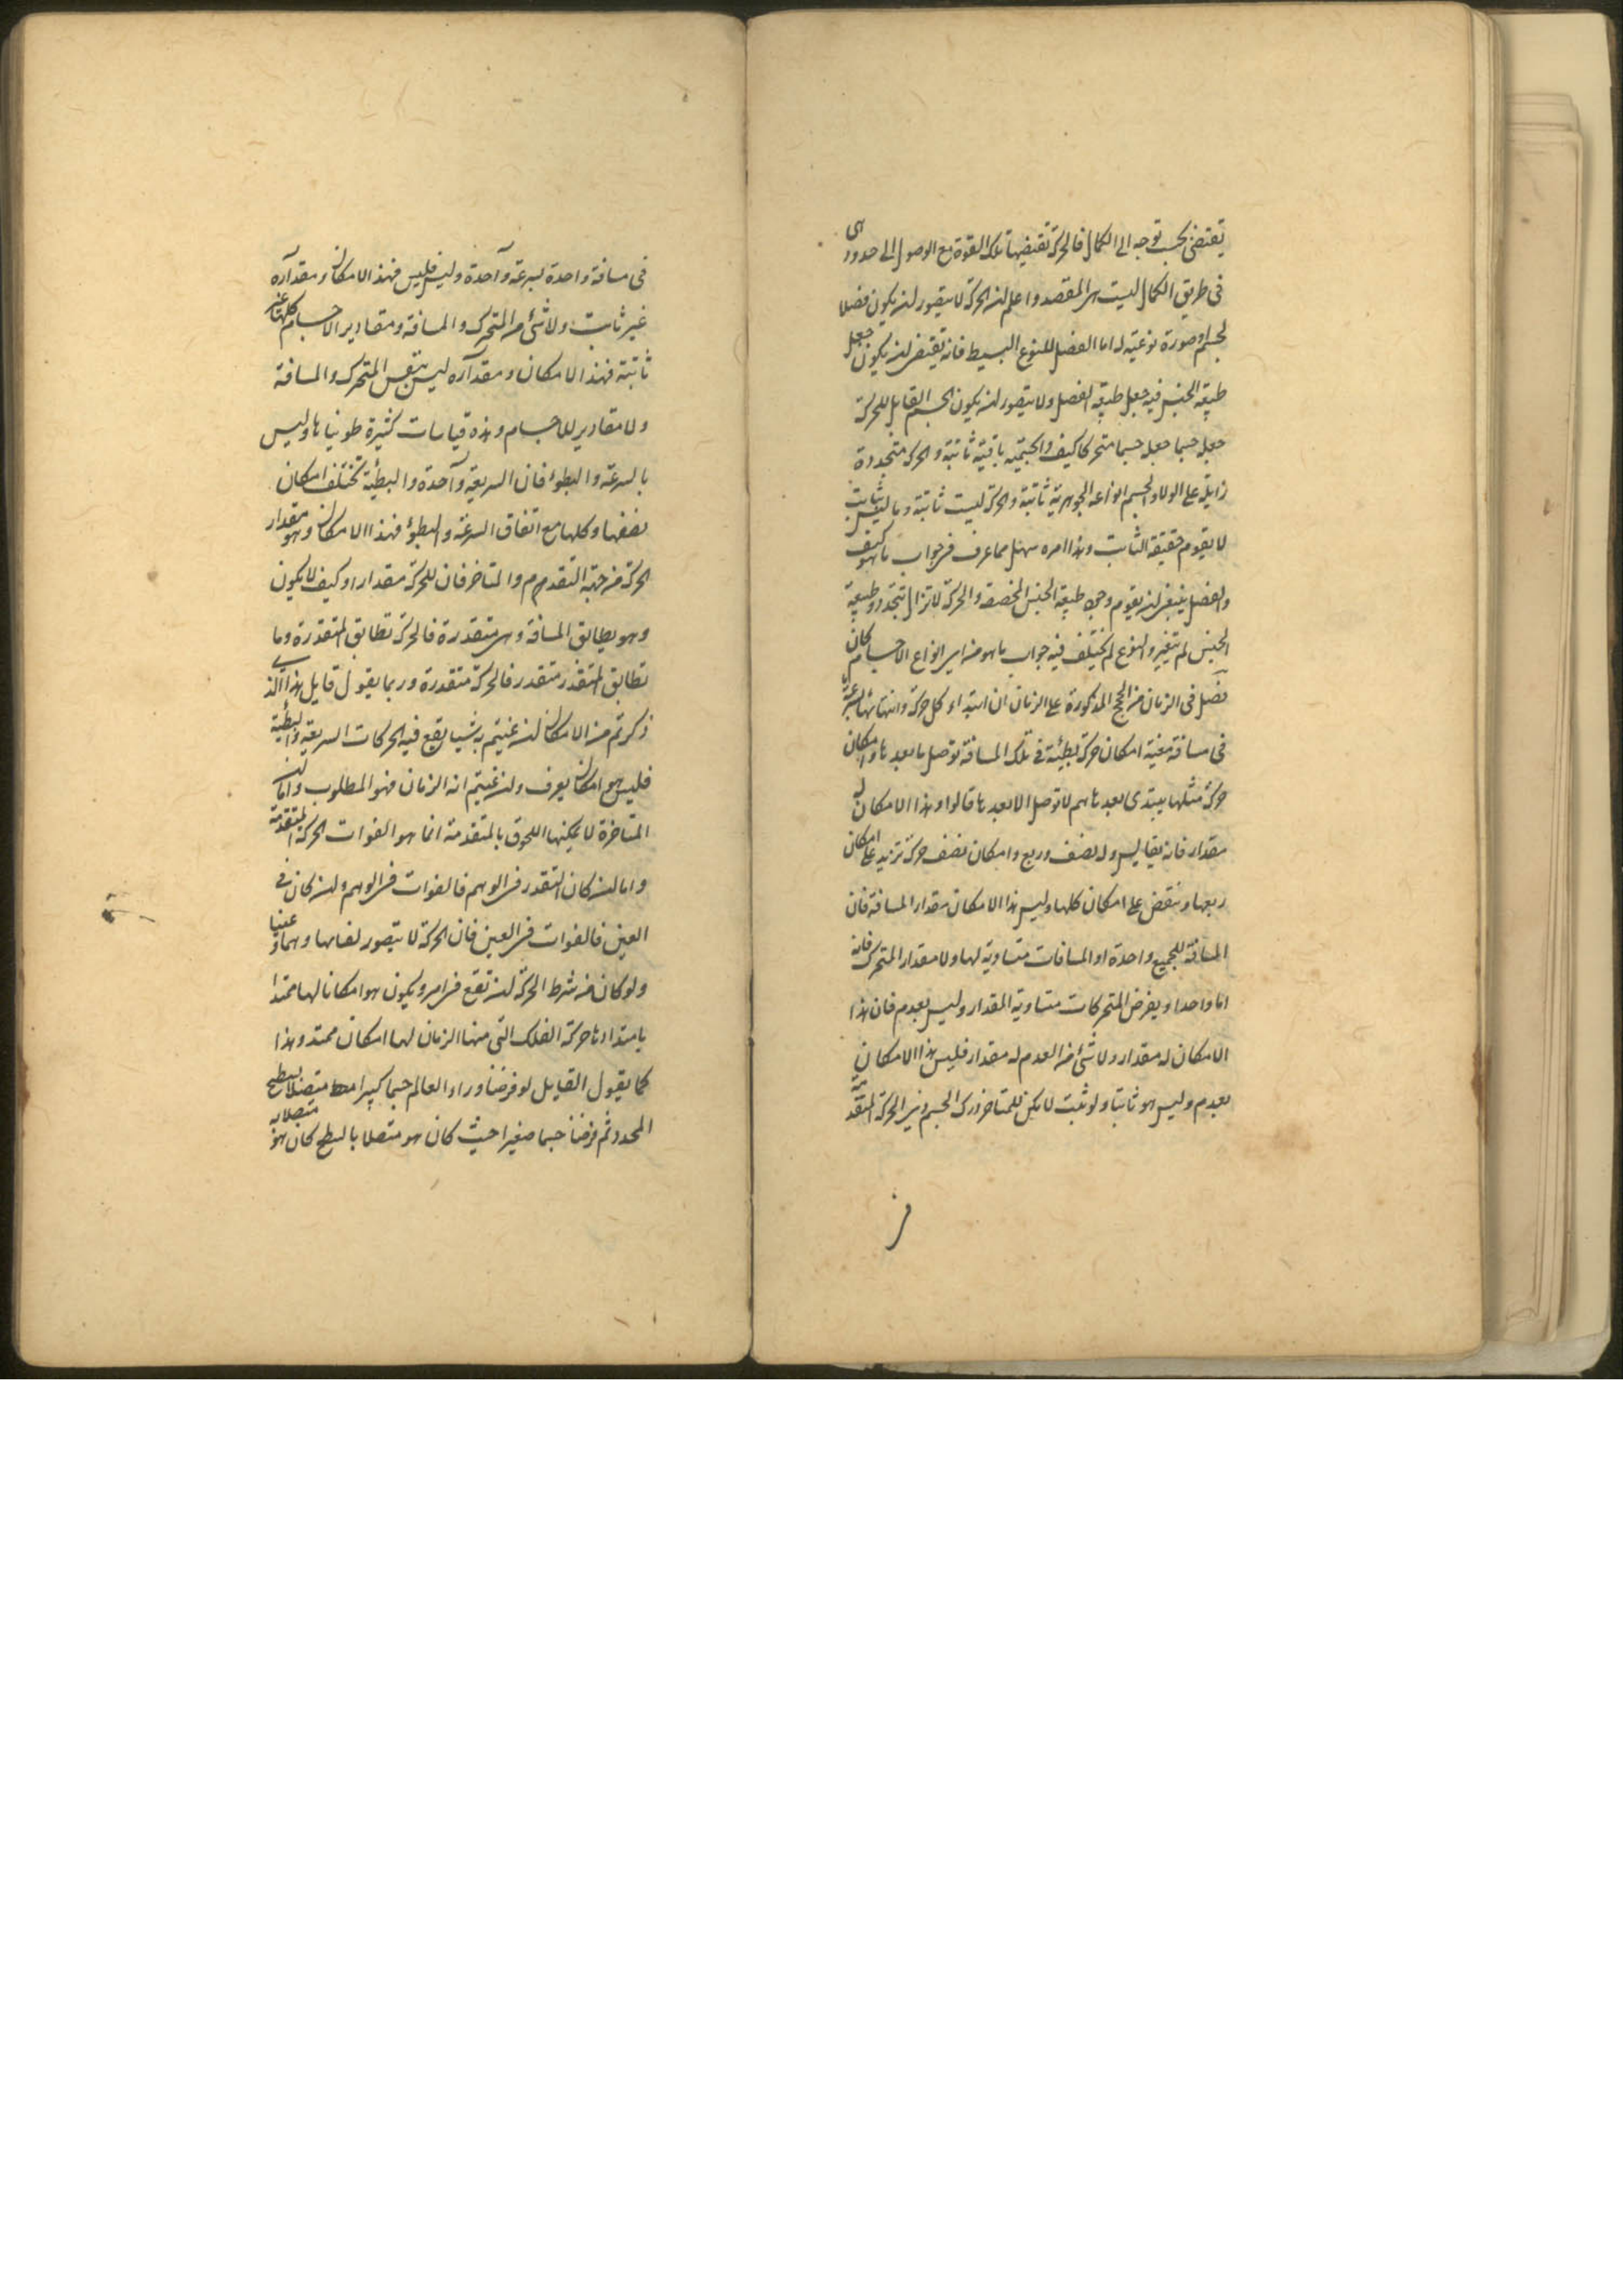 يقتضي بحسب توجه الى الكمال فالحركة تقتضيها تلك القوة مع الوصول الى حدود هى
في طريق الكمال ليست هى المقصد واعلم ان الحركة لا يتصور ان يكون فصلا
لجسم او صورة نوعية له اما الفصل للنوع البسيط فانه يقتضى ان يكون جعل
طبيعة الجنس فيه جعل طبيعة الفصل ولا يتصور ان يكون الجسم القابل للحركة
جعله جسما جعله جسما متحركا كيف والجسمية باقية ثابتة والحركة متجددة
زايلة على الولا والجسم انواعه الجوهرية ثابتة والحركة ليست ثابتة وما ليس بثابت
لا يقوم حقيقة الثابت وهذا امره سهل مما عرف فى جواب ما هو كيف
والفصل ينبغى ان يقوم وجود طبيعة الجنس المخصصة والحركة لا تزال تتجدد وطبيعة
الجنس لم يتغير والنوع لم يختلف فيه جواب ما هو من اى انواع الاجسام كان
فصل فى الزمان من الحجج المذكورة على الزمان ان ابتداء كل حركة وانتهائها بسرعة ما
فى مسافة معينة امكان حركة بطيئة فى تلك المسافة توصل ما بعدها وامكان
حركة مثلها يبتدى بعدها هم لا توصل الا بعدها قالوا وهذا الامكان له
مقدار فانه يقايس وله نصف وربع وامكان نصف حركة تزيد على امكان
ربعها وينقص على امكان كلها وليس هذا الامكان مقدار المسافة فان
المسافة للجميع واحدة او المسافات متساوية لها ولا مقدار المتحرك فانه
اما واحد او يفرض المتحركات متساوية المقدار وليس بعدم فان هذا
الامكان له مقدار ولا شئ من العدم له مقدار فليس هذا الامكان
بعدم وليس هو ثابتا ولو ثبت لا يمكن للمتاخر درك الجسم وغير الحركة المتقدمة
فى
فى مسافة واحدة بسرعة واحدة وليس فليس فهذا الامكان ومقداره
غير ثابت ولا شئ من المتحرك والمسافة ومقادير الاجسام كلها غير
ثابتة فهذا الامكان ومقداره ليس بنفس المتحرك والمسافة
ولا مقادير للاجسام وهذه قياسات كثيرة طويناها وليس
بالسرعة والبطوء فان السريعة واحدة والبطيئة تختلف امكان
نصفها وكلها مع اتفاق السرعة والبطؤ فهذا الامكان وهو مقدار
الحركة من جهة التقدم والمتاخر فان للحركة مقدارا وكيف لا يكون
وهو يطابق المسافة وهى متقدرة فالحركة تطابق المتقدرة وما
تطابق المتقدر متقدر فالحركة متقدرة وربما يقول قايل هذا الذى
ذكرتم من الامكان ان عنيتم به شيئا يقع فيه الحركات السريعة والبطيئة
فليس هو امكان يعرف وان عنيتم انه الزمان فهو المطلوب واما ان
المتاخرة لا يمكنها اللحوق بالمتقدمة انما هو الفوات الحركة المتقدمة
واما ان كان التقدر فى الوهم فالفوات فى الوهم وان كان فى
العين فالفوات فى العين فان الحركة لا يتصور بقاءها وهما وعينا
ولو كان من شرط الحركة ان تقع فى امر ويكون هو امكانا لها ممتدا
بامتدادها حركة الفلك التى منها الزمان لها امكان ممتد وهذا
كما يقول القايل لو فرضنا وراء العالم جسما كبيرا متصلا بسطح
المحدد ثم فرضنا جسما صغيرا حيث كان هو متصلا بالسطح كان هو متصلا به